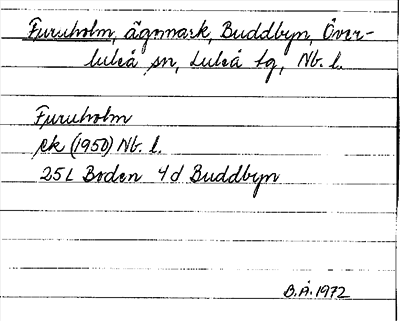 Furuholm, ägomark, Buddbyn, Över-
luleå sn, Luleå tg, Nb. l.
Furuholm
ek (1950) Nb. l.
25L Boden 4d Buddbyn
B.Å. 1972